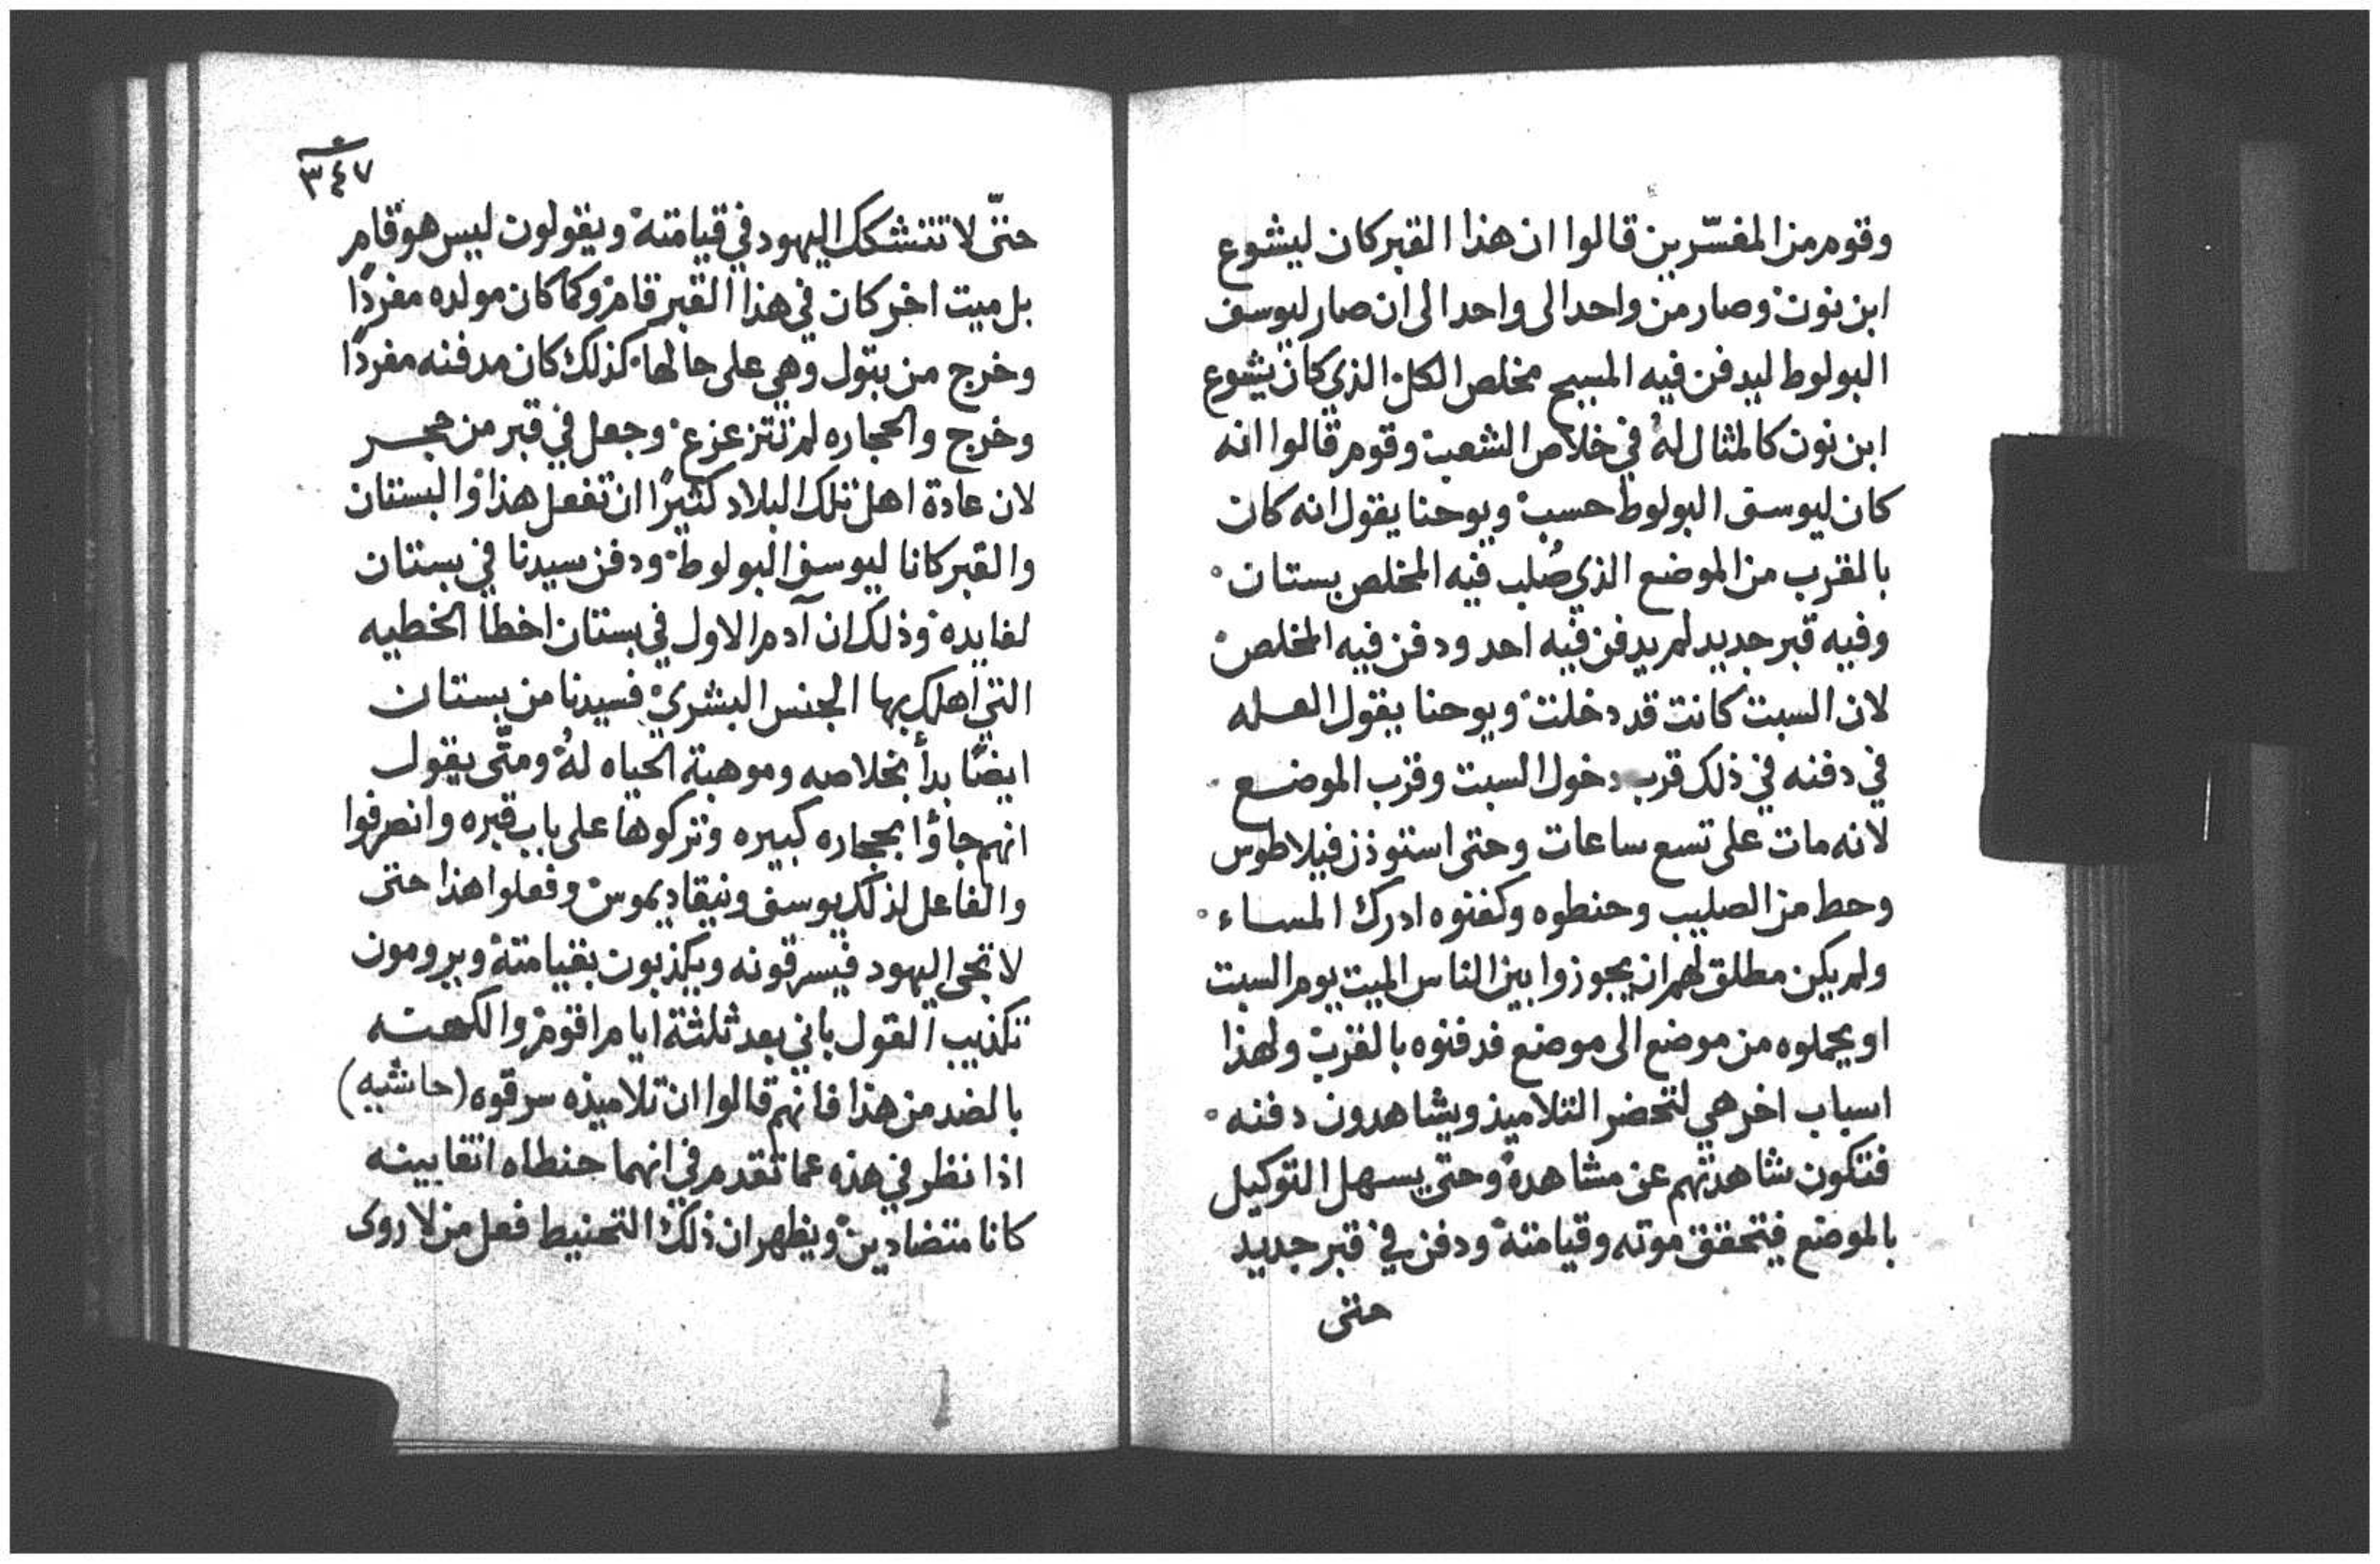 وقوم من المفسّرين قالوا ان هذا القبر كان ليشوع
ابن نون وصار من واحد الى واحد الى ان صار ليوسف
البولوط ليدفن فيه المسيح مخلص الكل الذي كان يشوع
ابن نون كالمثال لهُ في خلاص الشعب وقوم قالوا انه
كان ليوسف البولوط حسب ويوحنا يقول انه كان
بالقرب من الموضع الذي صُلب فيه المخلص بستان
وفيه قبر جديد لم يدفن فيه احد ودفن فيه المخلص
لان السبت كانت قد دخلت ويوحنا يقول العله
في دفنه في ذلك قرب دخول السبت وقرب الموضع
لانه مات على تسع ساعات وحتى استوذن فيلاطوس
وحط من الصليب وحنطوه وكفنوه ادرك المساء
ولم يكن مطلق لهم ان يجوزوا بين الناس الميت يوم السبت
او يحملوه من موضع الى موضع فدفنوه بالقرب ولهذا
اسباب اخر هي لتحضر التلاميذ ويشاهدون دفنه
فتكون شاهدتهم عن مشاهدة وحتى يسهل التوكيل
بالموضع فيتحقق موته وقيامته ودفن في قبر جديد
حتى
٣٤٧
حتّى لا تتشكك اليهود في قيامته ويقولون ليس هو قام
بل ميت اخر كان في هذا القبر قام وكما كان مولده مفردًا
وخرج من بتول وهي على حالها كذلك كان مدفنه مفردًا
وخرج والحجاره لم تتزعزع وجعل في قبر من حجر
لان عادة اهل تلك البلاد كثيرًا ان تفعل هذا والبستان
والقبر كانا ليوسف البولوط ودفن سيدنا في بستان
لفايده وذلك ان آدم الاول في بستان اخطأ الخطيه
التي اهلك بها الجنس البشري فسيدنا من بستان
ايضًا بدأ بخلاصه وموهبة الحياه لهُ ومتّى يقول
انهم جاؤا بحجاره كبيره وتركوها على باب قبره وانصرفوا
والفاعل لذلك يوسف ونيقاديموس وفعلوا هذا حتى
لا تجى اليهود فيسرقونه ويكذبون بقيامته ويرومون
تكذيب القول باني بعد ثلثة ايام اقوم والكهنه
بالضد من هذا فانهم قالوا ان تلاميذه سرقوه (حاشيه)
اذا نظر في هذه عما تقدم في انهما حنطاه اتقا بينه
كانا متضادين ويظهر ان ذلك التحنيط فعل من لا روى